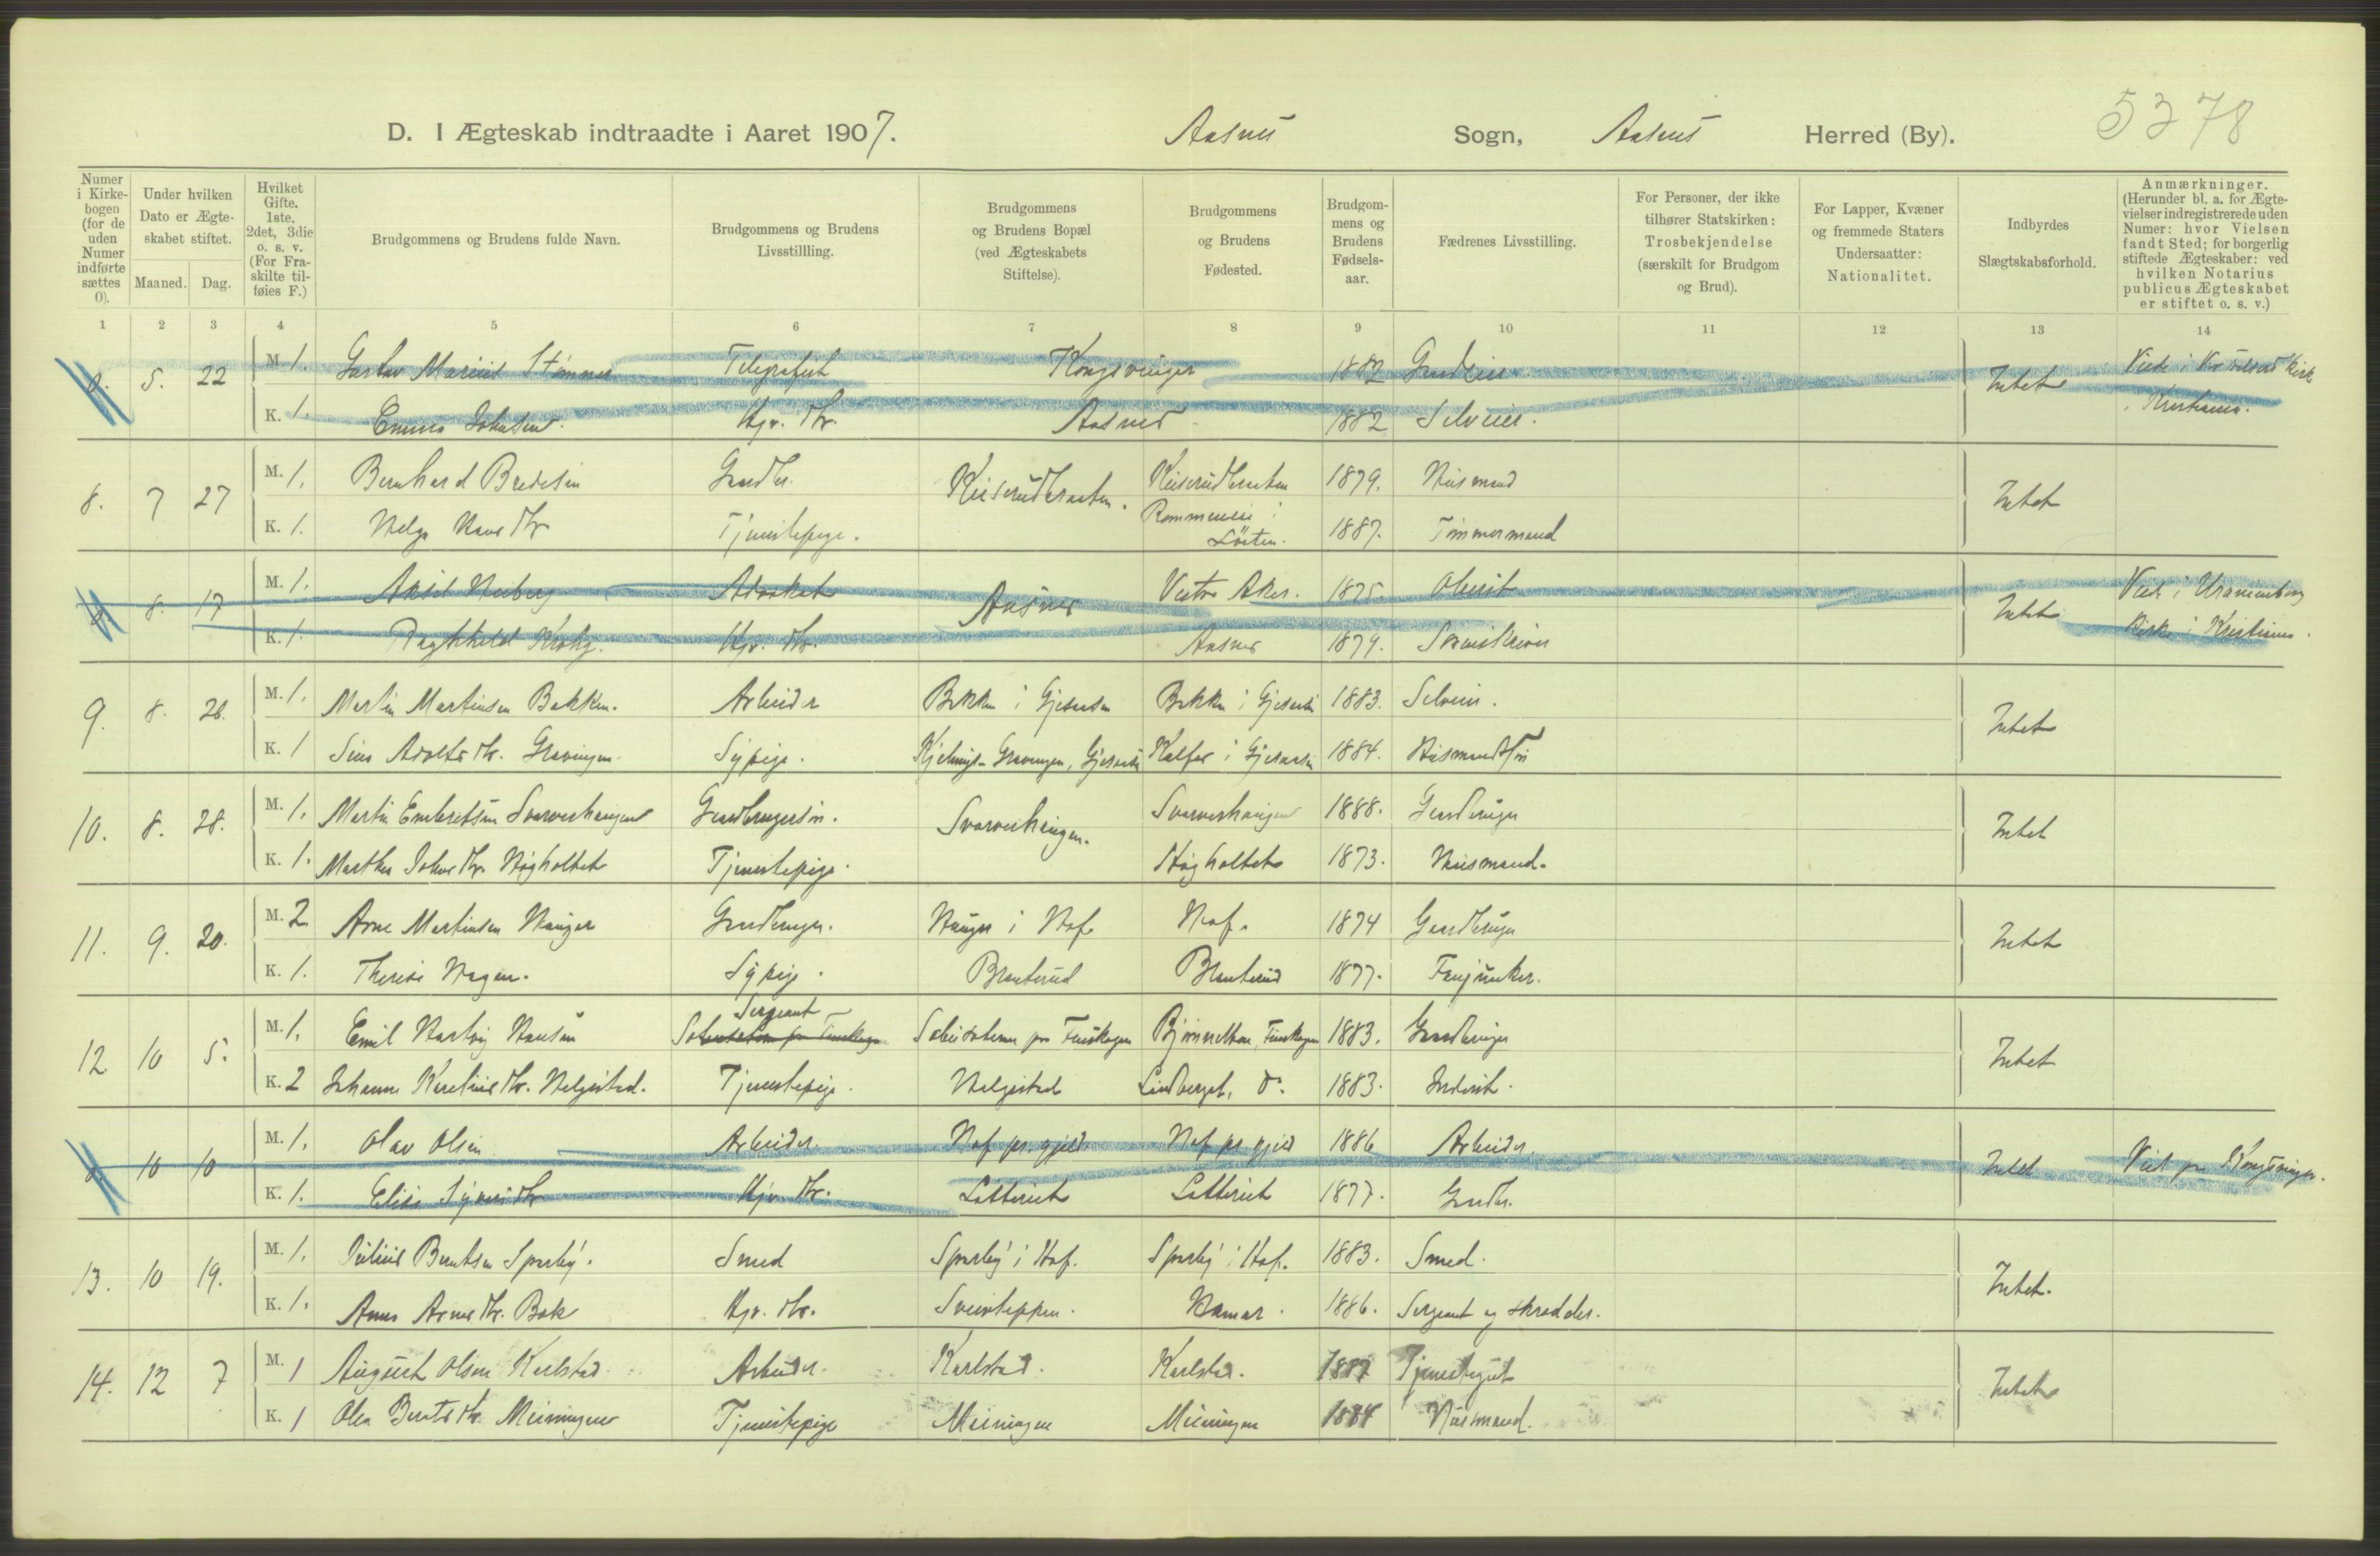 D. I Ægteskab indtraadte i Aaret 1907. Aasnes Sogn, Aasnes Herred (By). 5378
Numer i Kirkebogen (for de uden Numer indførte sættes 0).
Under hvilken Dato er Ægteskabet stiftet.
Maaned. Dag.
Hvilket Gifte. 1ste, 2det, 3die o. s. v. (For Fraskilte tilføies F.)
Brudgommens og Brudens fulde Navn.
Brudgommens og Brudens Livsstillling.
Brudgommens og Brudens Bopæl (ved Ægteskabets Stiftelse).
Brudgommens og Brudens Fødested.
Brudgommens og Brudens Fødselsaar.
Fædrenes Livsstilling.
For Personer, der ikke tilhører Statskirken: Trosbekjendelse (særskilt for Brudgom og Brud).
For Lapper, Kvæner og fremmede Staters Undersaatter: Nationalitet.
Indbyrdes Slægtskabsforhold.
Anmærkninger. (Herunder bl. a. for Ægtevielser indregistrerede uden Numer: hvor Vielsen fandt Sted; for borgerlig stiftede Ægteskaber: ved hvilken Notarius publicus Ægteskabet er stiftet o. s. v.)
1 2 3 4 5 6 7 8 9 10 11 12 13 14
0. 5. 22 M 1. Gustav Marius Telegrafist Kongsvinger 1882 Intet Viet i Kirke
K. 1. Emma Johnsen. Hjv. Dtr. Aasnes 1882 Selveier. i Kristiania.
8. 7 27 M. 1. Bernhard Bredesen Gaardbr. Keiserudbraaten. Keiserudbraaten 1879. Husmand Intet
K. 1. Helga Hansdtr Tjenestepige. i Løiten. 1887. Tømmermand
0 8. 17 M. 1. Aksel Advokat Aasnes Vestre Aker. 1875. Oberst Intet Viet i Uranienborg
K. 1. Ragnhild Krohg. Hjv. Dtr. Aasnes 1879. Sorenskriver Kirke i Kristiania.
9. 8. 28. M. 1. Martin Martinsen Bakken. Arbeider Bakken i Gjesaasen Bakken i Gjesaasen 1883. Selveier. Intet
K. 1 Adolfsdtr. Gravingen. Sypige. Gravingen, Gjesaasen i Gjesaasen 1884. Husmandssøn
10. 8. 28. M. 1. Martin Embretsen Svarverhaugen Gaardbrugersøn. Svarverhaugen. Svarverhaugen 1888. Gaardbruger Intet
K. 1. Martha Johnsdtr. Høgholtet Tjenestepige. Høgholtet 1873. Husmand.
11. 9. 20. M. 2 Arne Martinsen Hauger Gaardbruger. Hauger i Hof. Hof. 1874 Gaardbruger Intet
K. 1. Therese Hagen. Sypige. Branterud Branterud 1877. Fanejunker.
12 10 5. M. 1. Emil Hartvig Hansen Sergeant paa Finskogen 1883. Gaardbruger Intet
K. 2 Johanne Karelinedtr. Helgestad. Tjenestepige. Helgestad Lindberget, Do. 1883. Inderst.
0. 10 10 M. 1. Olav Olsen Arbeider. Hof pr. gjeld Hof pr. gjeld 1886 Arbeider. Intet Viet paa Kongsvinger.
K. 1. Elise Syversdtr Hjv. Dtr. 1877. Gaardbr.
13. 10 19. M. 1. Julius Berntsen Sparby. Smed Sparby i Hof. Sparby i Hof. 1883. Smed. Intet.
K. 1. Anna Arnesdtr. Bak Hjv. Dtr. Hamar. 1886. Sergeant og skrædder.
14. 12 7 M. 1 August Olsen Karlstad. Arbeider. Karlstad. Karlstad. 1887 Tjenestegut Intet
K. 1 Berntsdtr. Meiningen Tjenestepige Meiningen Meiningen 1884 Husmand.